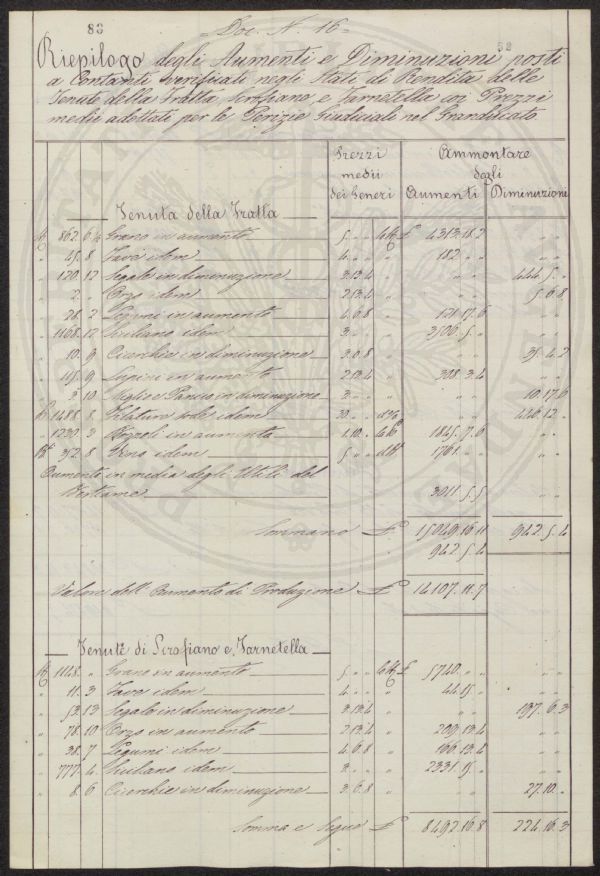 83
Doc. N. 16=
52
Riepilogo degli Aumenti e Diminuzioni posti
a Contanti verificati negli Stati di Rendita delle
Tenute della Fratta, Scrofiano e Farnetella coi Prezzi
medii adottati per le Perizie Giudiciali nel Granducato
Prezzi medii dei Generi
Ammontare degli
Aumenti Diminuzioni
Tenuta della Fratta
862. 6/4 Grano in aumento 5 „ „ £ 4313.18.2 „ „
„ 45. 8 Fave idem 4 „ „ „ 182 „ „ „ „
„ 170. 12 Segale in diminuzione 2.13.4 „ „ „ 444. 5 „
„ 2 „ Orzo idem 2.13.4 „ „ „ 5. 6. 8
„ 28. 2 Legumi in aumento 4. 6. 8 „ 121.17.6 „ „
„ 1168. 12 Siciliano idem 3 „ „ „ 3506. 5 „ „ „
„ 10. 9 Cicerchie in diminuzione 3. 6. 8 „ „ „ 35. 4. 2
„ 115. 9 Lupini in aumento 2.13.4 „ 308. 3.4 „ „
„ 3. 10 Miglio e Panico in diminuzione 3 „ „ „ „ „ 10.17.6
„ 1488. 8 idem 30 „ „ „ „ 446.12 „
„ 1230. 3 in aumento 1.10 „ 1845. 7.6 „ „
352. 8 idem 5 „ „ 1761 „ „ „ „
Aumento in media degli Utili del
Bestiame 3011. 5. 5 „ „
Sommano £ 15049.16.11 942. 5. 4
„ 942. 5. 4
Valore dell'Aumento di Produzione £ 14107. 11. 7
Tenute di Scrofiano e Farnetella
1148. „ Grano in aumento 5 „ „ £ 5740. „ „ „ „
„ 11. 3 Fave idem 4 „ „ „ 44.15 „ „ „
„ 53. 13 Segale in diminuzione 2.13.4 „ „ „ 197. 6. 3
„ 78. 10 Orzo in aumento 2.13.4 „ 209.13.4 „ „
„ 38. 7 Legumi idem 4. 6. 8 „ 166.13.4 „ „
„ 777. 4 Siciliano idem 3 „ „ „ 2331.15 „ „ „
„ 8. 6 Cicerchie in diminuzione 3. 6. 8 „ „ „ 27.10 „
Somma e Segue £ 8492.16.8 224.16.3